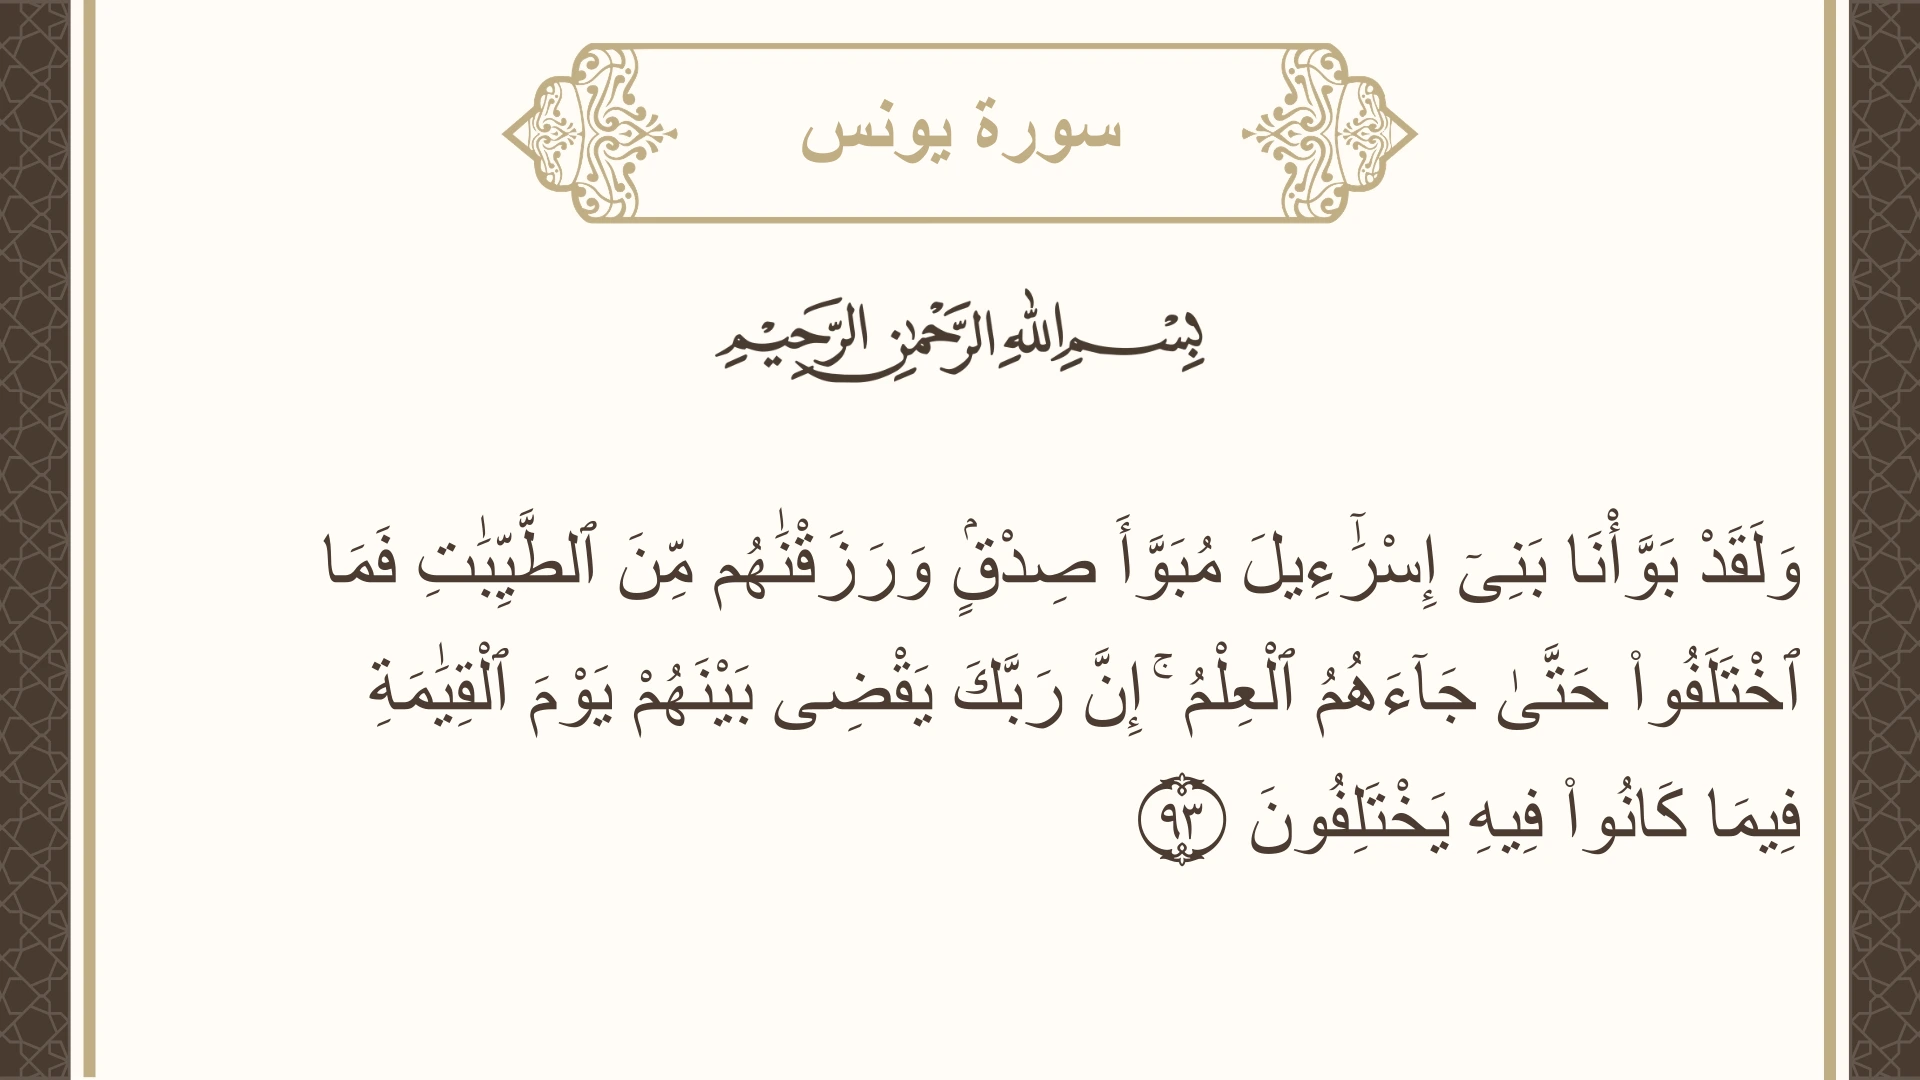 سورة يونس
بِسْمِ اللهِ الرَّحْمٰنِ الرَّحِيْمِ
وَلَقَدْ بَوَّأْنَا بَنِىٓ إِسْرَٰٓءِيلَ مُبَوَّأَ صِدْقٍۢ وَرَزَقْنَٰهُم مِّنَ ٱلطَّيِّبَٰتِ فَمَا
ٱخْتَلَفُوا۟ حَتَّىٰ جَآءَهُمُ ٱلْعِلْمُ ۚ إِنَّ رَبَّكَ يَقْضِى بَيْنَهُمْ يَوْمَ ٱلْقِيَٰمَةِ
فِيمَا كَانُوا۟ فِيهِ يَخْتَلِفُونَ ٩٣